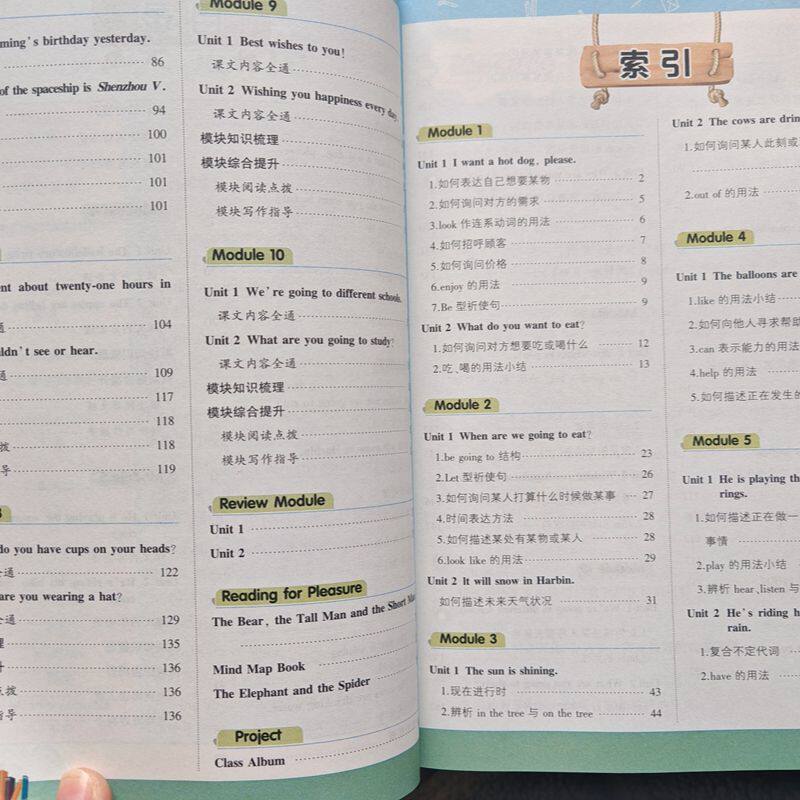 ming's birthday yesterday.
86
of the spaceship is Shenzhou V.
94
100
101
101
101
ent about twenty-one hours in
通 104
ldn't see or hear.
通 109
117
118
拨 118
导 119
do you have cups on your heads?
全通 122
are you wearing a hat?
全通 129
理 135
升 136
点拨 136
指导 136
Module 9
Unit 1 Best wishes to you!
课文内容全通
Unit 2 Wishing you happiness every day.
课文内容全通
模块知识梳理
模块综合提升
模块阅读点拨
模块写作指导
Module 10
Unit 1 We're going to different schools.
课文内容全通
Unit 2 What are you going to study?
课文内容全通
模块知识梳理
模块综合提升
模块阅读点拨
模块写作指导
Review Module
Unit 1
Unit 2
Reading for Pleasure
The Bear, the Tall Man and the Short
Mind Map Book
The Elephant and the Spider
Project
Class Album
索引
Module 1
Unit 1 I want a hot dog, please.
1.如何表达自己想要某物 2
2.如何询问对方的需求 5
3.look 作连系动词的用法 6
4.如何招呼顾客 7
5.如何询问价格 8
6.enjoy 的用法 9
7.Be 型祈使句 9
Unit 2 What do you want to eat?
1.如何询问对方想要吃或喝什么 12
2.吃、喝的用法小结 13
Module 2
Unit 1 When are we going to eat?
1.be going to 结构 23
2.Let 型祈使句 26
3.如何询问某人打算什么时候做某事 27
4.时间表达方法 28
5.如何描述某处有某物或某人 28
6.look like 的用法 29
Unit 2 It will snow in Harbin.
如何描述未来天气状况 31
Module 3
Unit 1 The sun is shining.
1.现在进行时 43
2.辨析 in the tree 与 on the tree 44
Unit 2 The cows are drin
1.如何询问某人此刻或
2.out of 的用法
Module 4
Unit 1 The balloons are
1.like 的用法小结
2.如何向他人寻求帮助
3.can 表示能力的用法
4.help 的用法
5.如何描述正在发生的
Module 5
Unit 1 He is playing th
rings.
1.如何描述正在做一
事情
2.play 的用法小结
3.辨析 hear、listen 与
Unit 2 He's riding h
rain.
1.复合不定代词
2.have 的用法